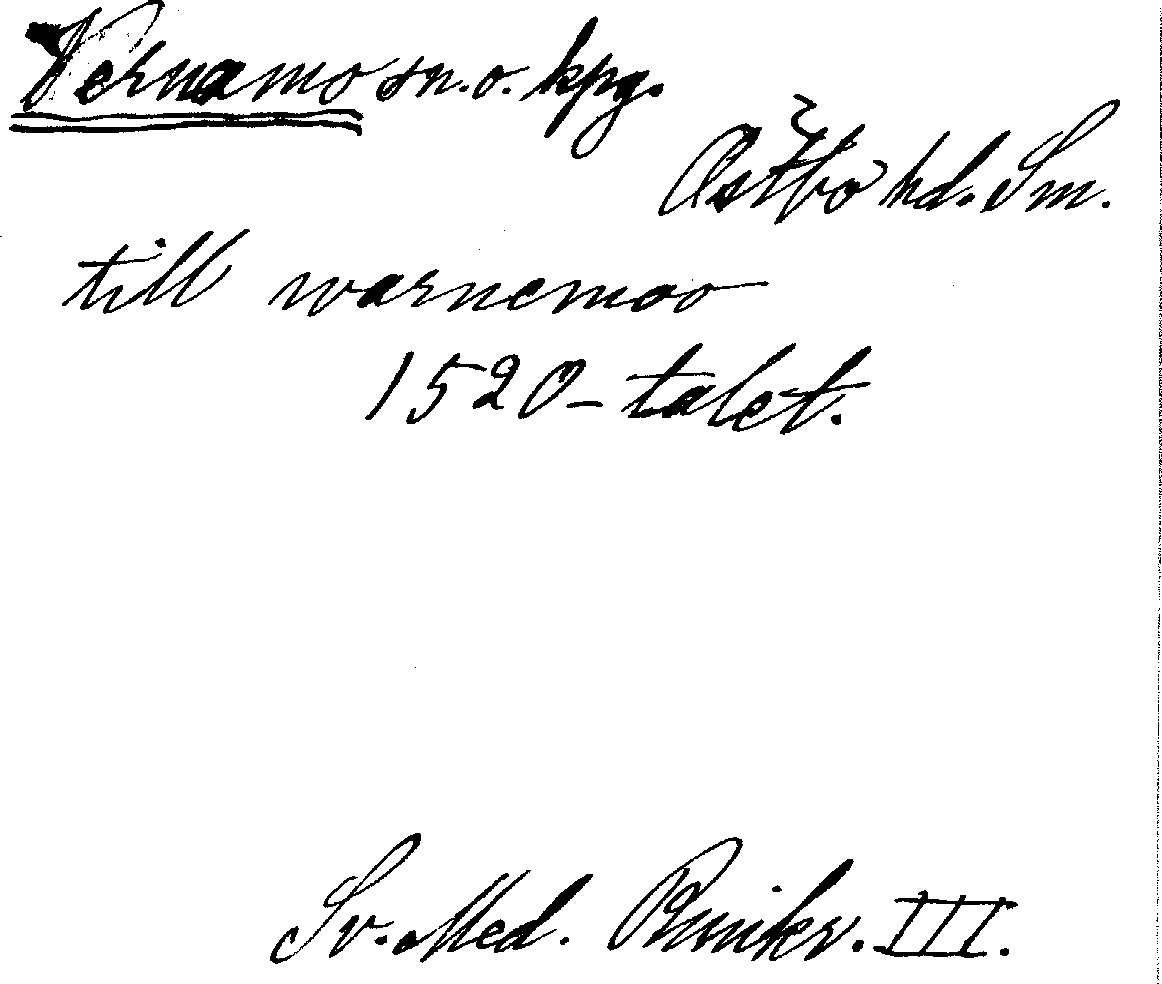 Vernamo sn. o. kpg.
Östbo hd. Sm.
till warnemoo
1520-talet.
Sv. Med. Runikr. III.